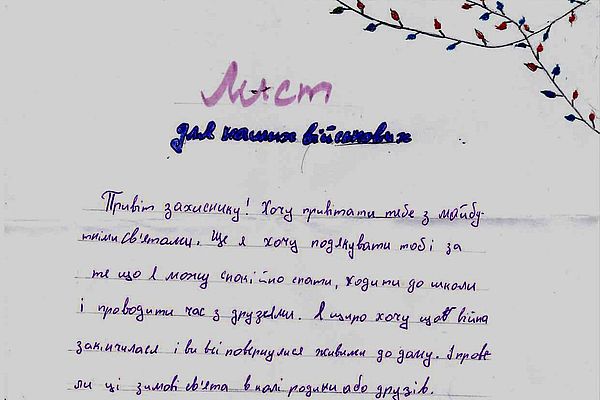 Лист
для наших військових
Привіт захиснику! Хочу привітати тебе з майбу-
тніми св'ятами. Ще я хочу подякувати тобі за
те що я можу спокійно спати, ходити до школи
і проводити час з друзями. Я щиро хочу щоб війна
закінчилася і ви всі повернулися живими до дому. І прове
ли ці зимові св'ята в колі родини або друзів.